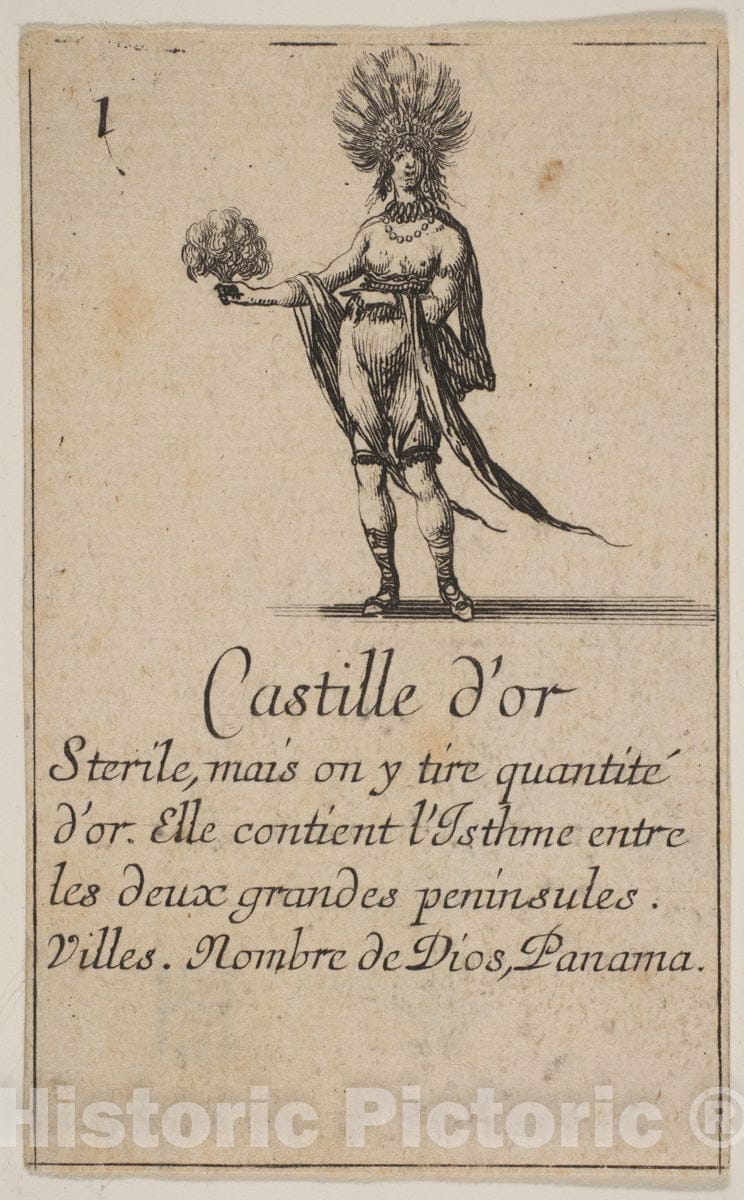 1
Castille d'or
Sterile, mais on y tire quantité
d'or. Elle contient l'Isthme entre
les deux grandes peninsules.
Villes. Nombre de Dios, Panama.
Historic Pictoric ®